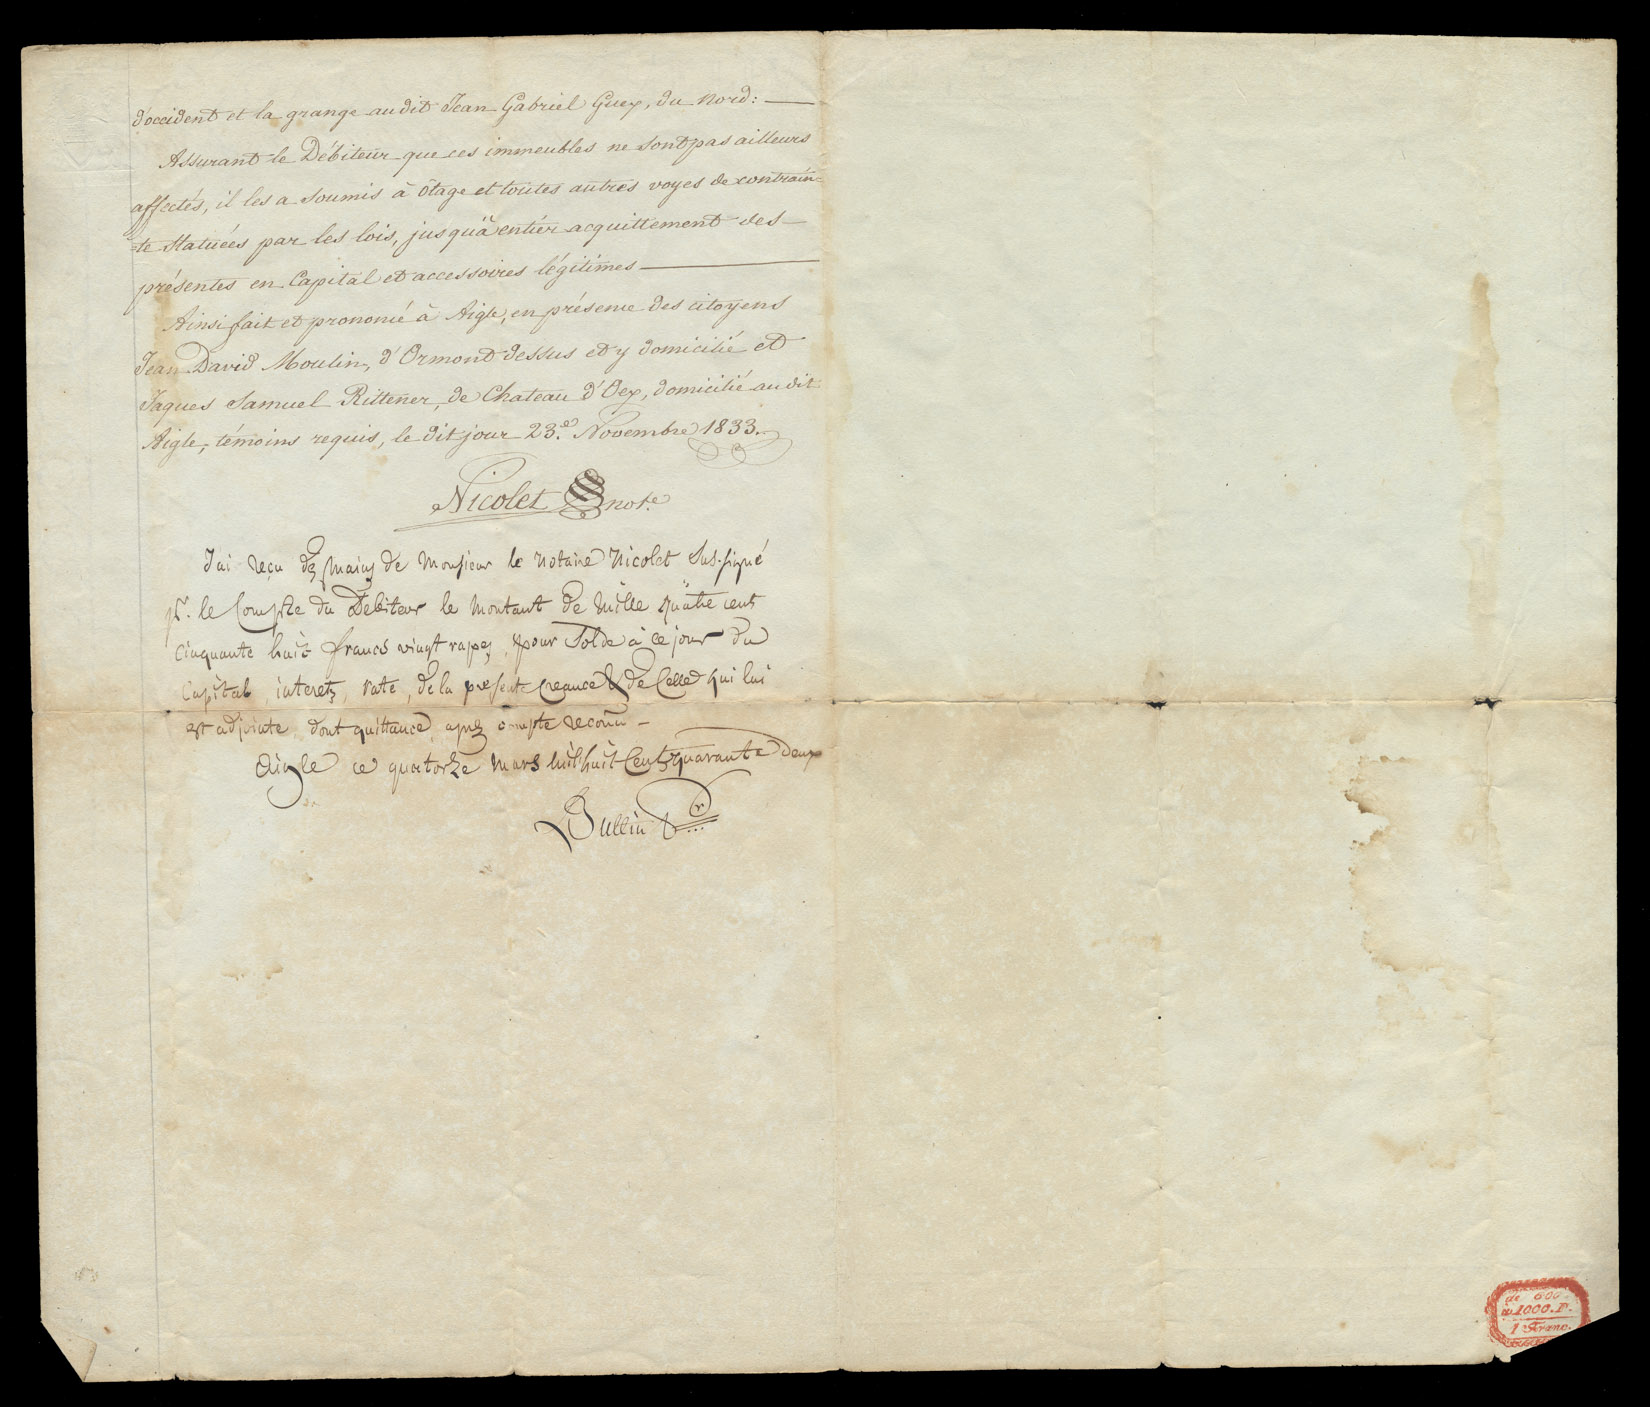 d'occident et la grange au dit Jean Gabriel Guex, du Nord: —
Assurant le Débiteur que ces immeubles ne sont pas ailleurs
affectés, il les a soumis à ôtage et toutes autres voyes de contrain=
=te statuées par les lois, jusqu'à entier acquittement des
présentes en Capital et accessoires légitimes —
Ainsi fait et prononcé à Aigle, en présence des citoyens
Jean David Moulin, d'Ormont dessus et y domicilié et
Jaques Samuel Rittener, de Chateau d'Oex, domicilié au dit
Aigle, témoins requis, le dit jour 23.e Novembre 1833.
Nicolet not.e
J'ai reçu des mains de Monsieur le Notaire Nicolet sus-signé
pr. le Compte du Debiteur le montant de mille quatre cent
cinquante huit francs vingt rapes, pour Solde à ce jour du
Capital, interets, rate, de la presente creance & de Celle qui lui
est adjointe, dont quittance, après compte reconu —
Aigle ce quatorze Mars mil huit Cent quarante deux
Jullin
de 600.
à 1000. F.
1 Franc.